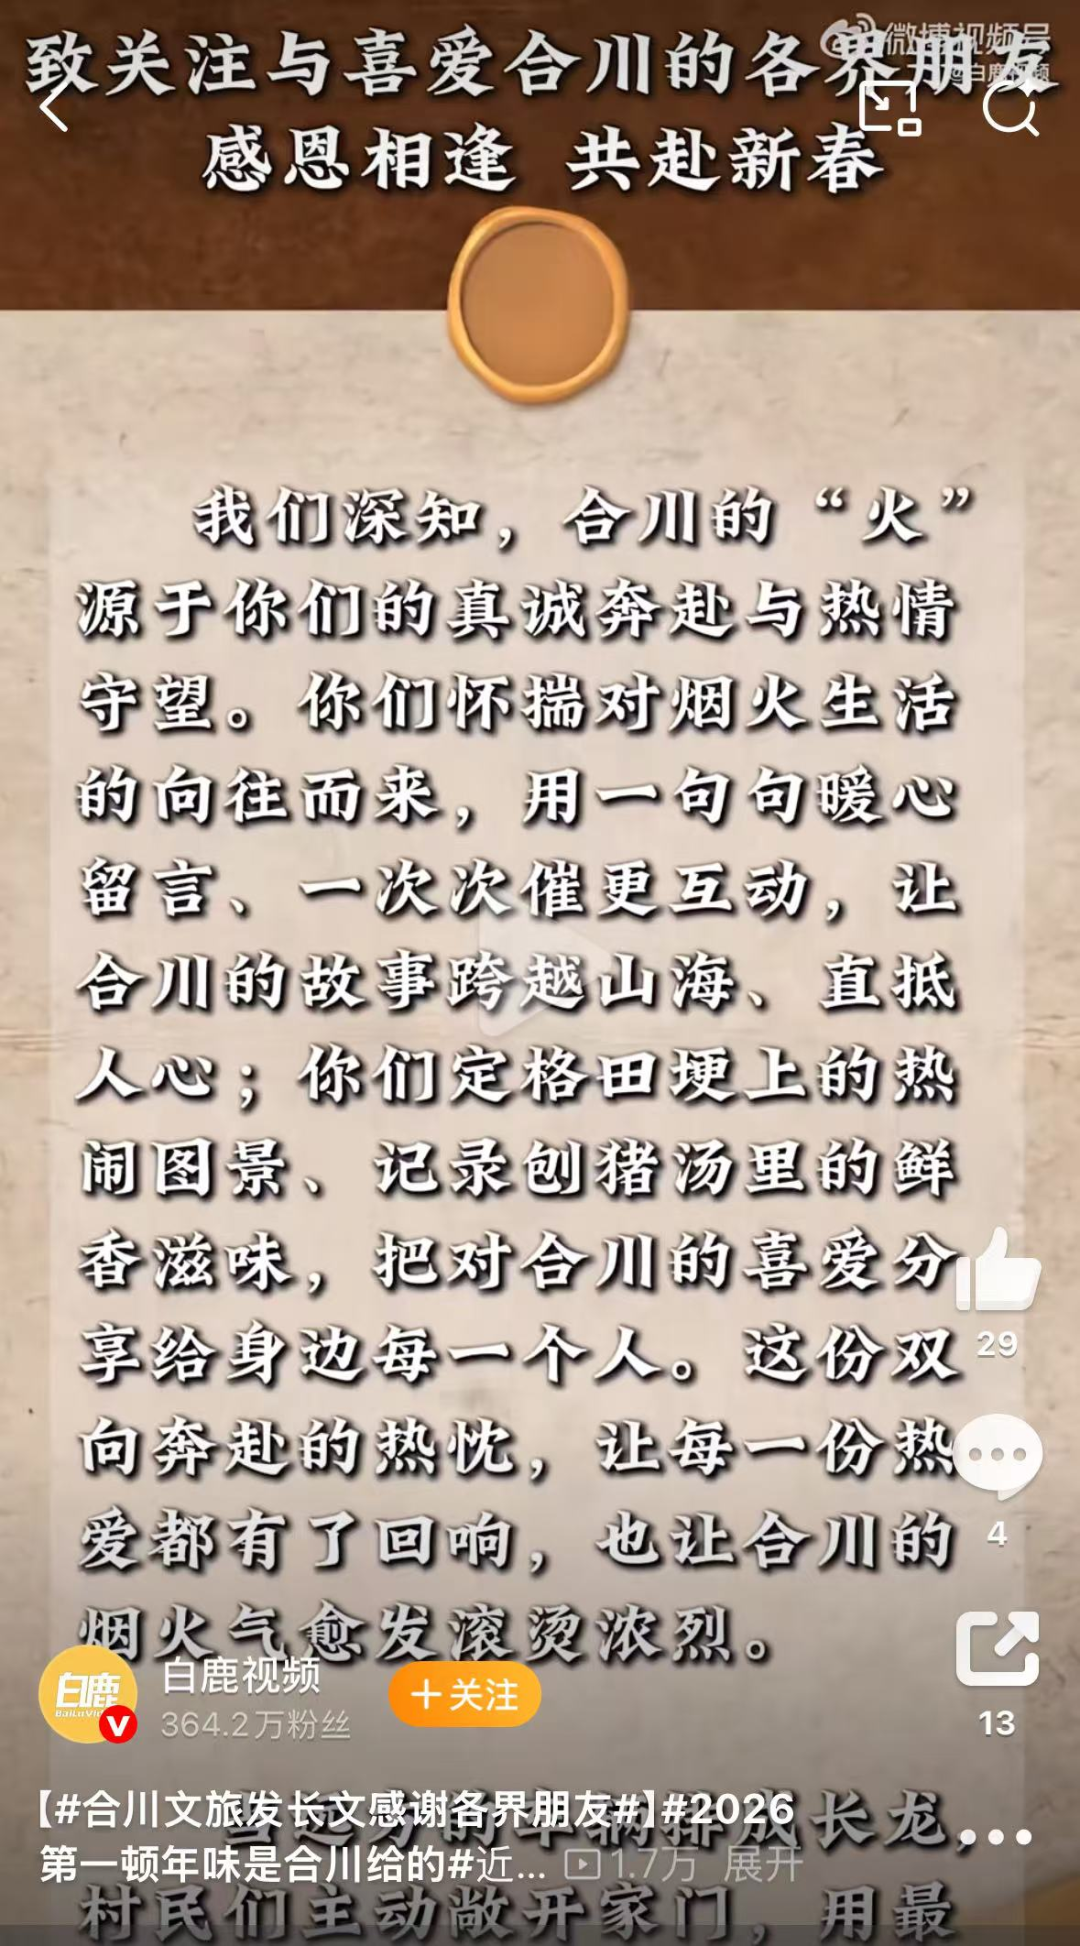 微博视频号
@白鹿视频
致关注与喜爱合川的各界朋友
感恩相逢 共赴新春
我们深知，合川的“火”
源于你们的真诚奔赴与热情
守望。你们怀揣对烟火生活
的向往而来，用一句句暖心
留言、一次次催更互动，让
合川的故事跨越山海、直抵
人心；你们定格田埂上的热
闹图景、记录刨猪汤里的鲜
香滋味，把对合川的喜爱分
享给身边每一个人。这份双
向奔赴的热忱，让每一份热
爱都有了回响，也让合川的
烟火气愈发滚烫浓烈。
29
4
13
白鹿
BaiLuVi
白鹿视频
364.2万粉丝
+关注
【#合川文旅发长文感谢各界朋友#】#2026
第一顿年味是合川给的#近... 1.7万 展开
当远方的车辆排成长龙，
村民们主动敞开家门，用最